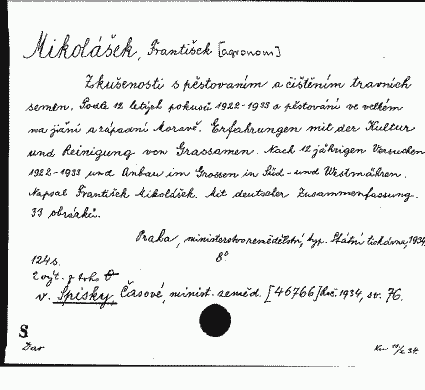 Mikolášek, František [agronom]
Zkušenosti s pěstovaním a čištěním travních
semen. Podle 12 letých pokusů 1922-1933 a pěstování ve velkém
na jižní a západní Moravě. Erfahrungen mit der Kultur
und Reinigung von Grassamen. Nach 12 jährigen Versuchen
1922-1933 und Anbau im Grossen in Süd- und Westmähren.
Napsal František Mikolášek. Mit deutscher Zusammenfassung.
33 obrázků.
Praha, ministerstvo zemědělství, typ. Státní tiskárna, 1934
8°
124 s.
2 výt. z toho
v. Spisky, Časové, minist. zeměd. [46766] Roč. 1934, str. 76.
S
Dar